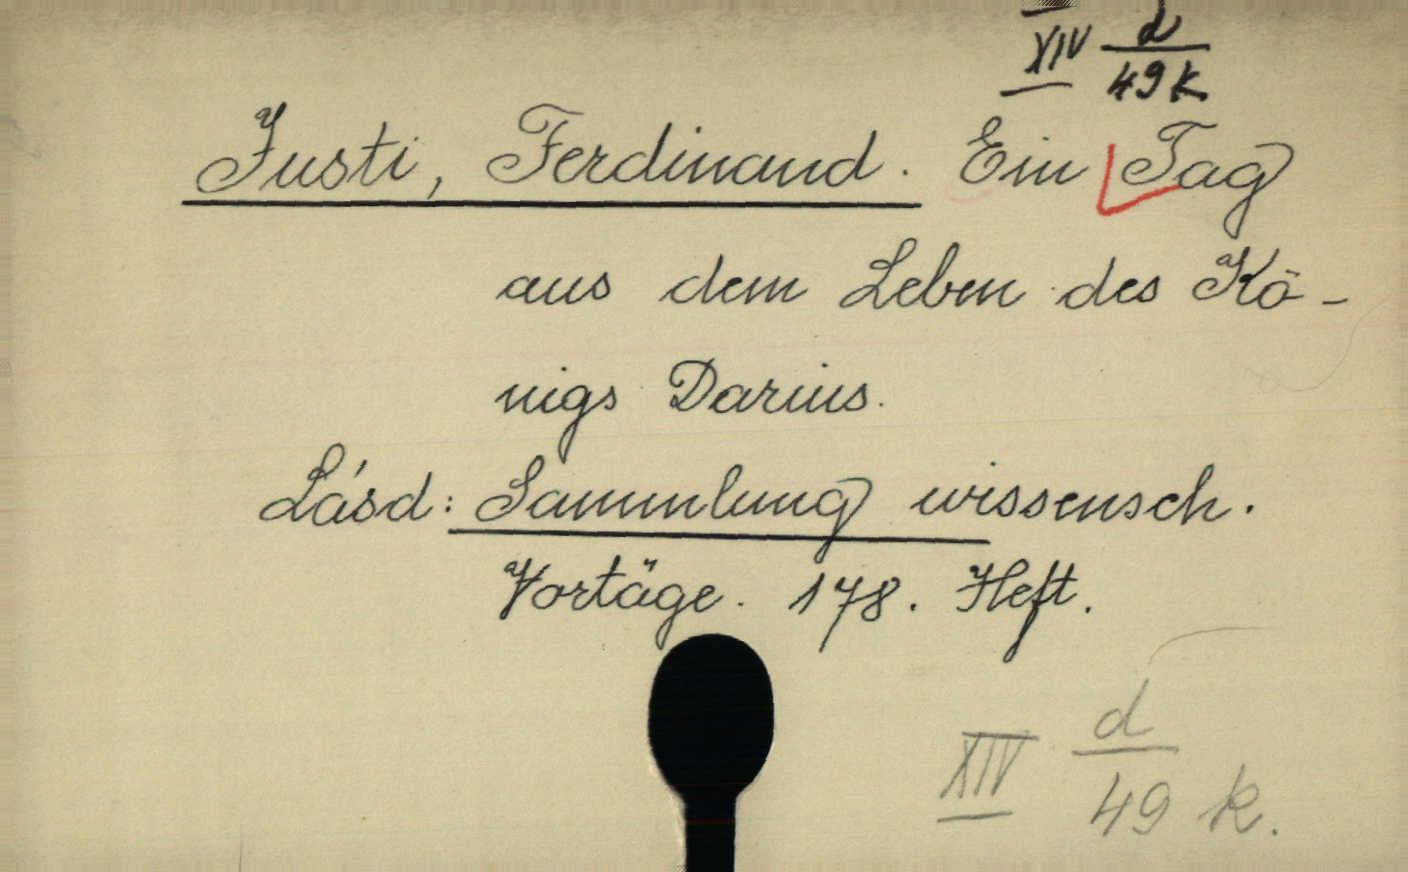 XIV d
49 k
Justi, Ferdinand. Ein Tag
aus dem Leben des Kö-
nigs Darius.
Lásd: Sammlung wissensch.
Vortäge. 178. Heft.
XIV d
49 k.